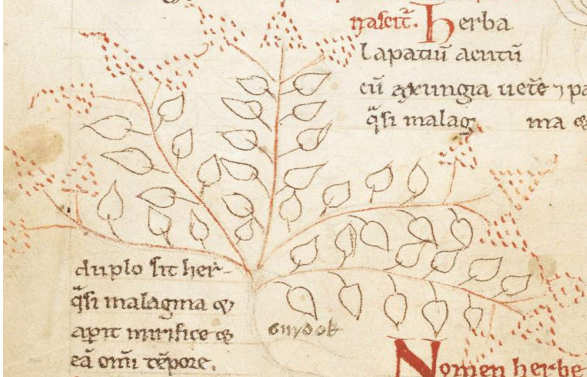 nascit̃. Herba
lapatiũ acutũ
cũ axungia uetẽ ⁊ pa
q̃si malag ma &
duplo sit her-
q̃si malagma &
apit mirifice &
eã omĩ tẽpore.
Nomen herbe